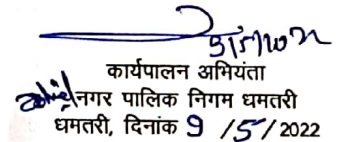 कार्यपालन अभियंता
नगर पालिक निगम धमतरी
धमतरी, दिनांक 9 /5/ 2022